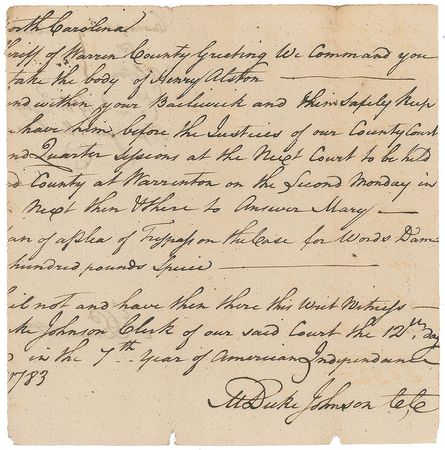 orth Carolina
heriff of Warren County Greeting We Command you
take the body of Henry Alston
und within your Bailiwick and him Safely Keep
have him before the Justices of our County Court
nd Quarter Sessions at the Next Court to be held
d County at Warrenton on the Second Monday in
Next then & there to Answer Mary
an of a plea of Trespass on the Case for Words Dam
hundred pounds Specie
ail not and have then there this Writ Witness
ke Johnson Clerk of our said Court the 12th day
in the 7th Year of American Independance
1783
M Duke Johnson CC